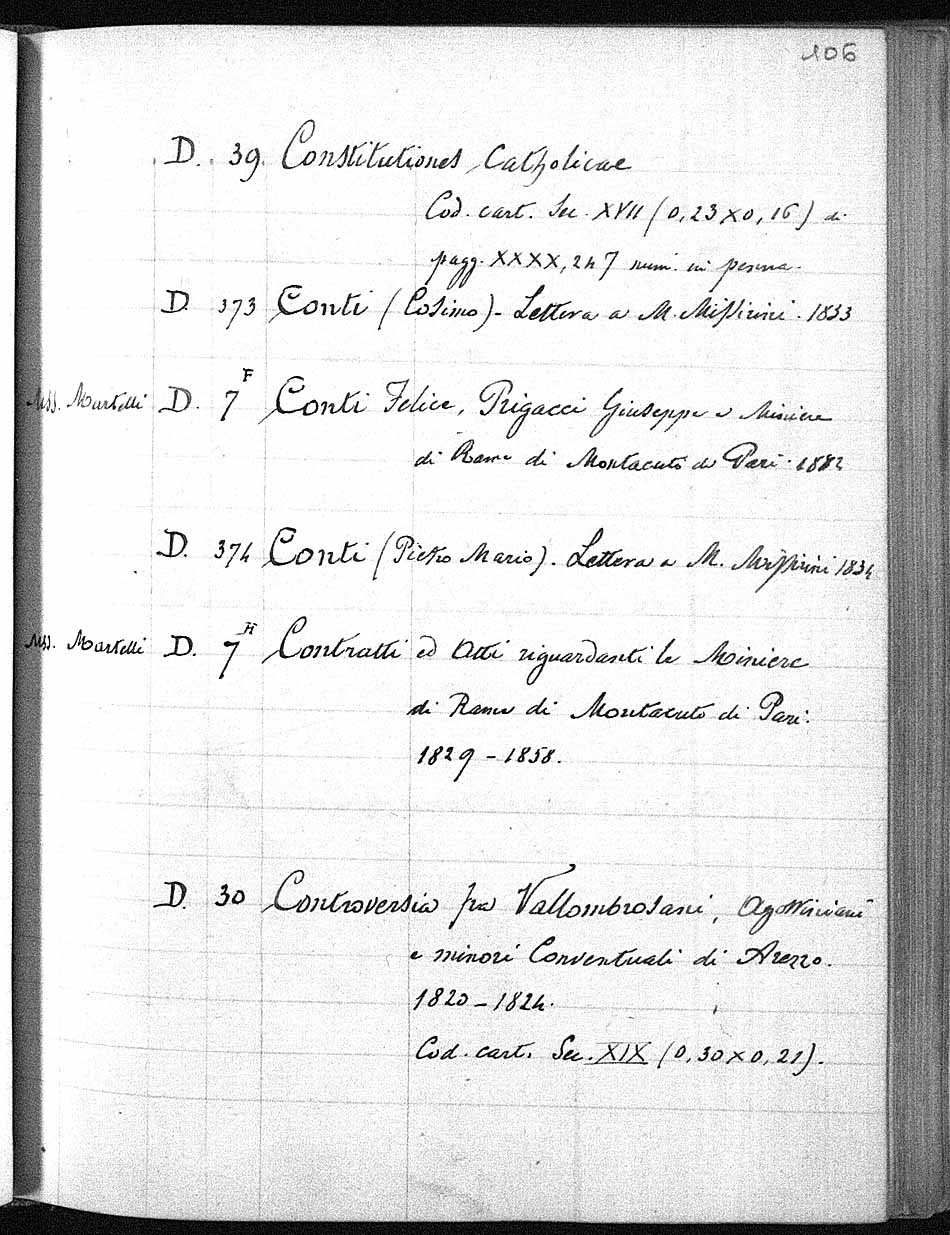 106
D. 39. Constitutiones Catholicae
Cod. cart. Sec. XVII (0,23 x 0,16) di
pagg. XXXX, 247 num. in penna.
D. 373 Conti (Cosimo) - Lettera a M. Missirini. 1833
Mss. Martelli D. 7 F Conti Felice, Rigacci Giuseppe e Miniere
di Rame di Montacuto di Pari. 1882
D. 374 Conti (Pietro Mario). Lettera a M. Missirini 1834
Mss. Martelli D. 7 H Contratti ed Atti riguardanti le Miniere
di Rame di Montacuto di Pari.
1829 - 1858.
D. 30 Controversia fra Vallombrosani, Agostiniani
e minori Conventuali di Arezzo.
1820 - 1824.
Cod. cart. Sec. XIX (0,30 x 0,21).